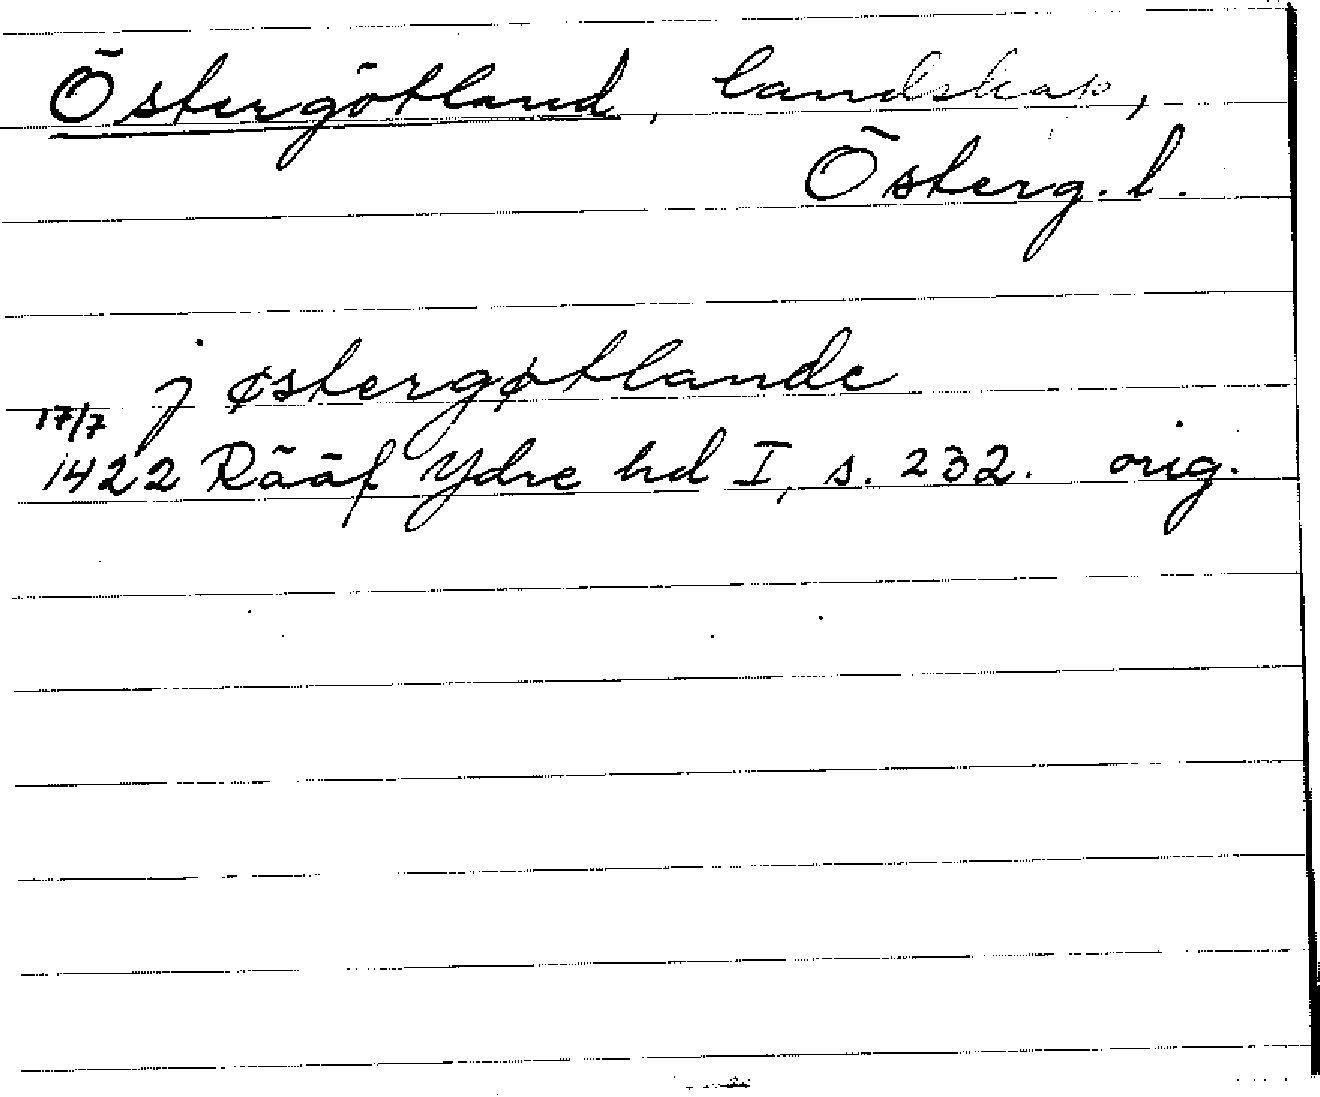 Östergötland, landskap,
Österg. l.
j østergøtlande
17/7
1422 Rääf Ydre hd I, s. 232. orig.